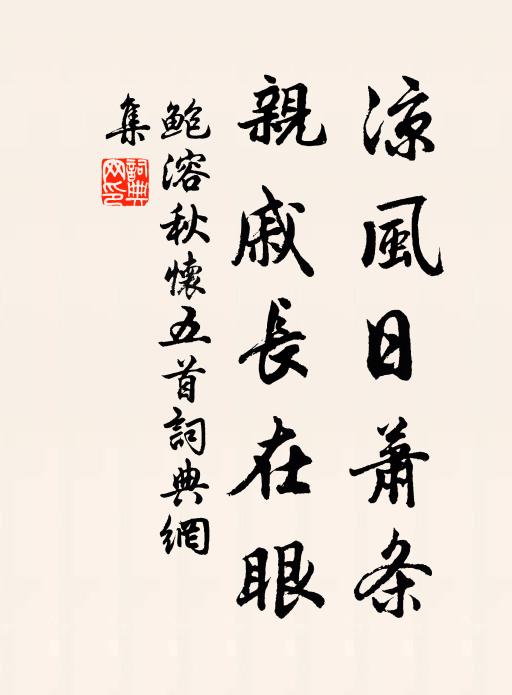 涼風日蕭条
親戚長在眼
鮑溶秋懷五首詞典網
集
詞典網印